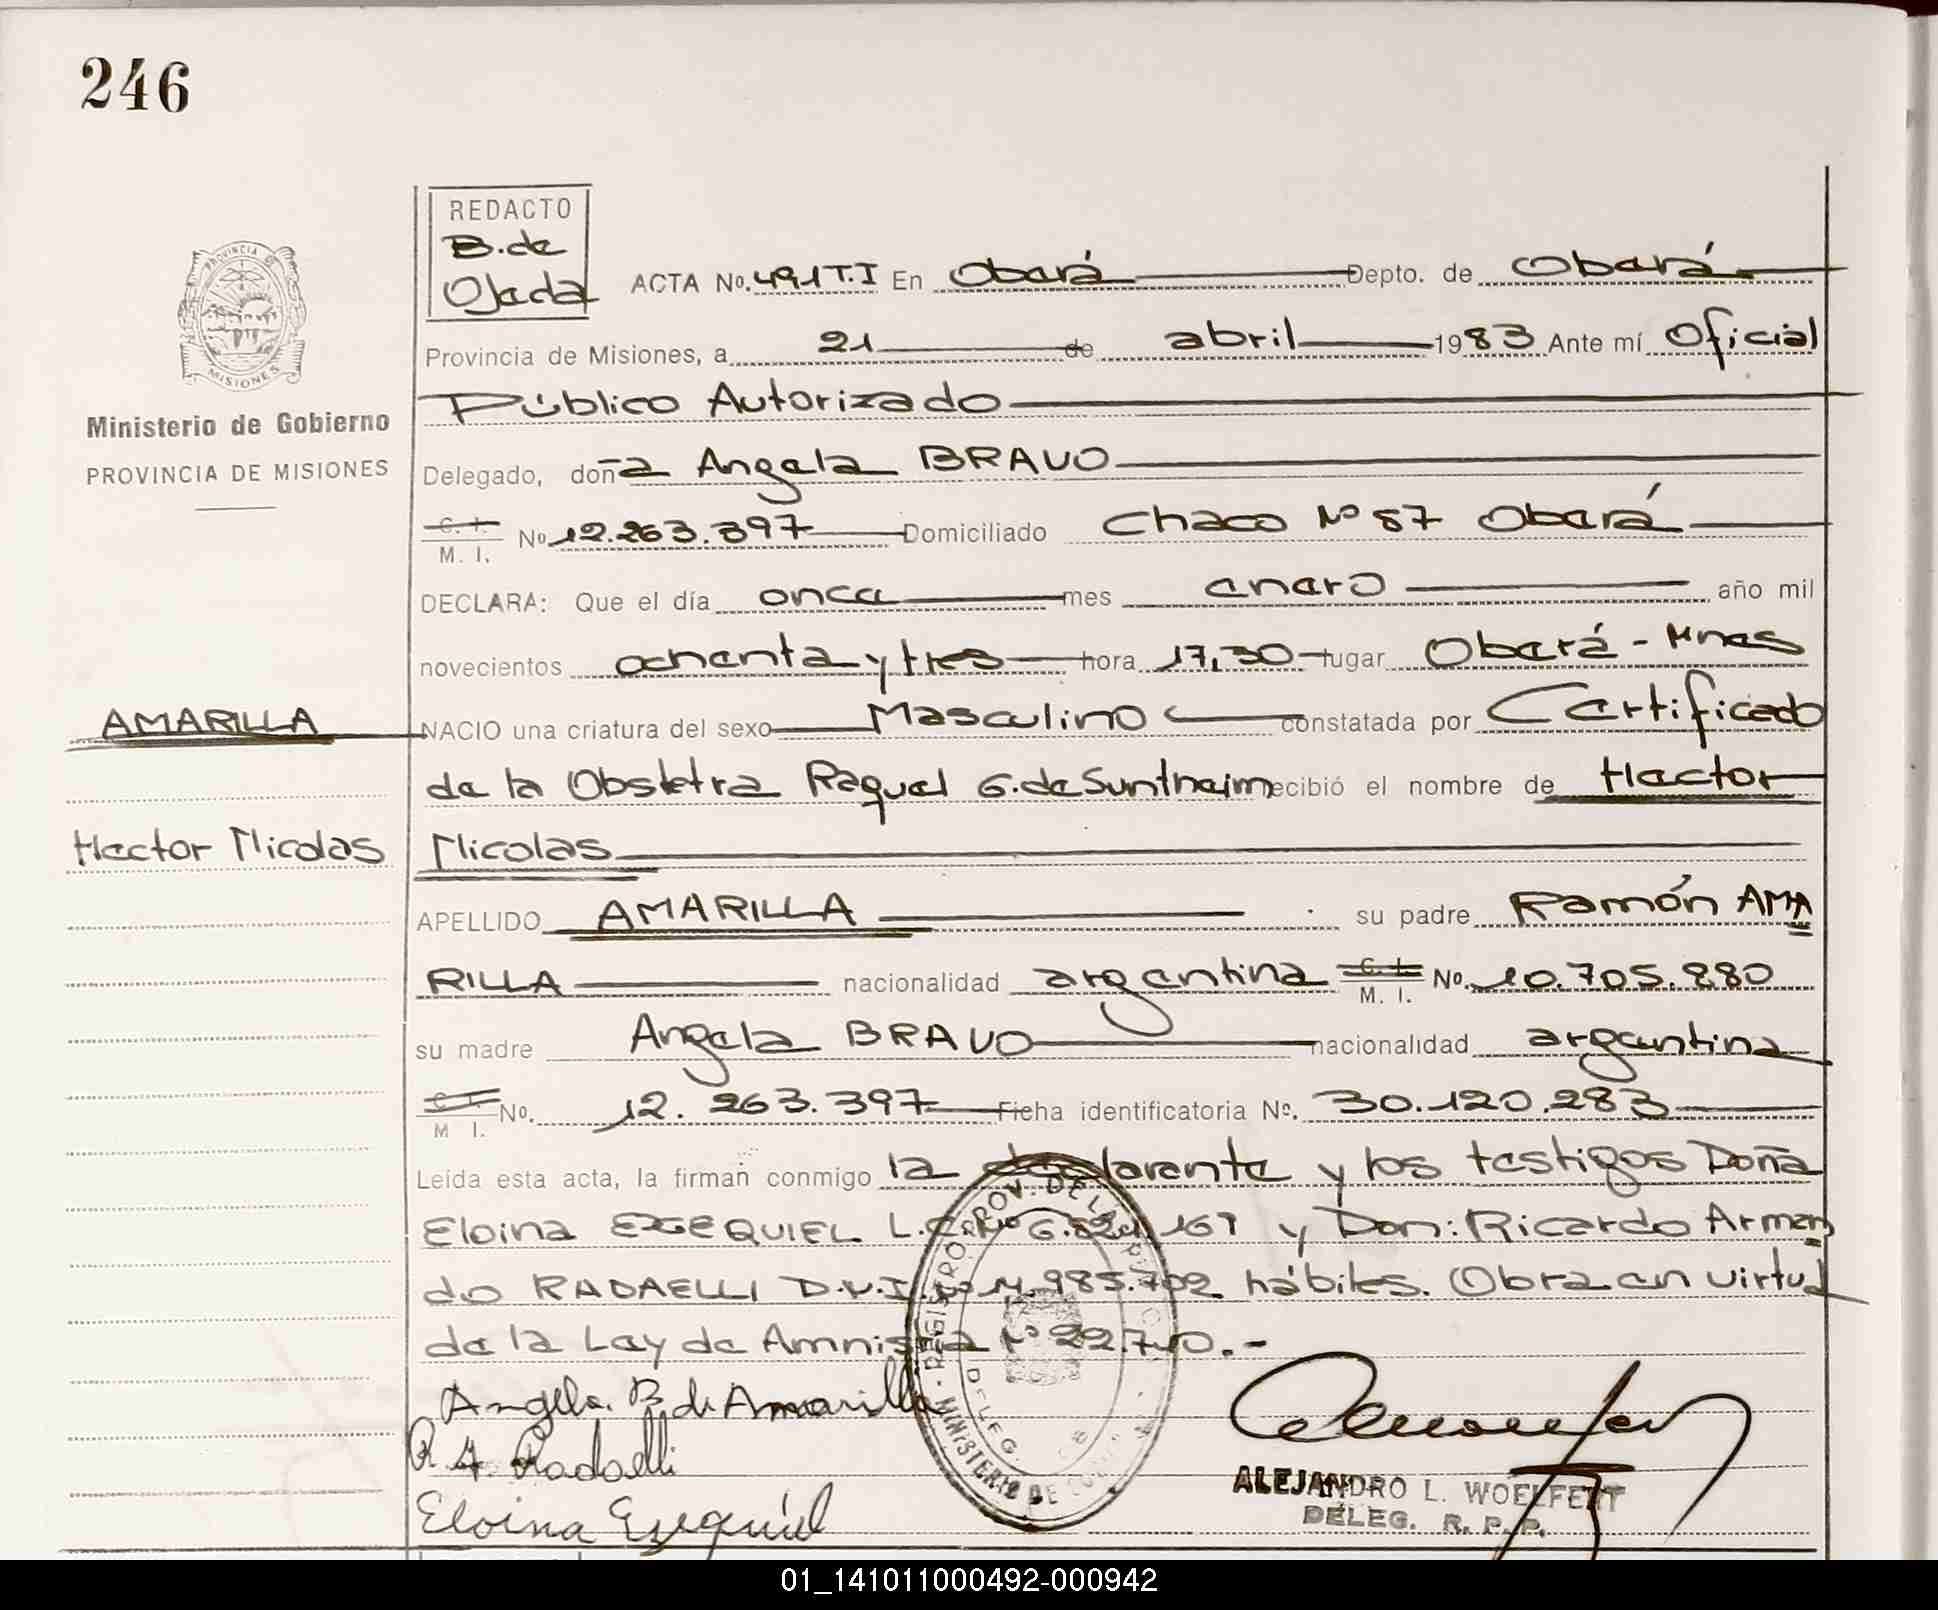 246
REDACTO
B. de
Ojeda
ACTA No. 491 T.I En Oberá Depto. de Oberá
Provincia de Misiones, a 21 de abril 1983 Ante mí Oficial
Público Autorizado
PROVINCIA DE
MISIONES
Ministerio de Gobierno
PROVINCIA DE MISIONES
Delegado, doña Angela BRAVO
C. I.
M. I. No 12.263.397 Domiciliado Chaco Nº 87 Oberá
DECLARA: Que el día once mes enero año mil
novecientos ochenta y tres hora 17,30 lugar Oberá - Mnes
AMARILLA
NACIO una criatura del sexo Masculino constatada por Certificado
de la Obstetra Raquel G. de Suntheim recibió el nombre de Hector
Hector Nicolas
Nicolas
APELLIDO AMARILLA su padre Ramón AMA
RILLA nacionalidad argentina C. I. M. I. No. 10.705.880
su madre Angela BRAVO nacionalidad argentina
C. I. M I. No. 12.263.397 Ficha identificatoria Nº. 30.120.283
Leída esta acta, la firman conmigo la declarante y los testigos Doña
Eloina EZEQUIEL L.C. Nº 169 y Don: Ricardo Arman
do RADAELLI D.N.I. Nº M. 985.702 hábiles. Obra en virtud
de la Ley de Amnistia Nº 22.710.-
Angela. B de Amarilla
R A. Radaelli
Eloina Ezequiel
REGISTRO PROV. DE LAS
DELEG.
MINISTERIO DE
ALEJANDRO L. WOELFERT
DELEG. R. P. P.
01_141011000492-000942